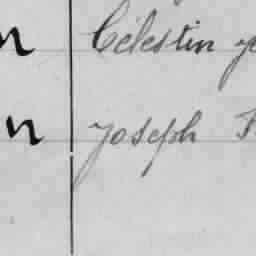 n Célestin
n Joseph